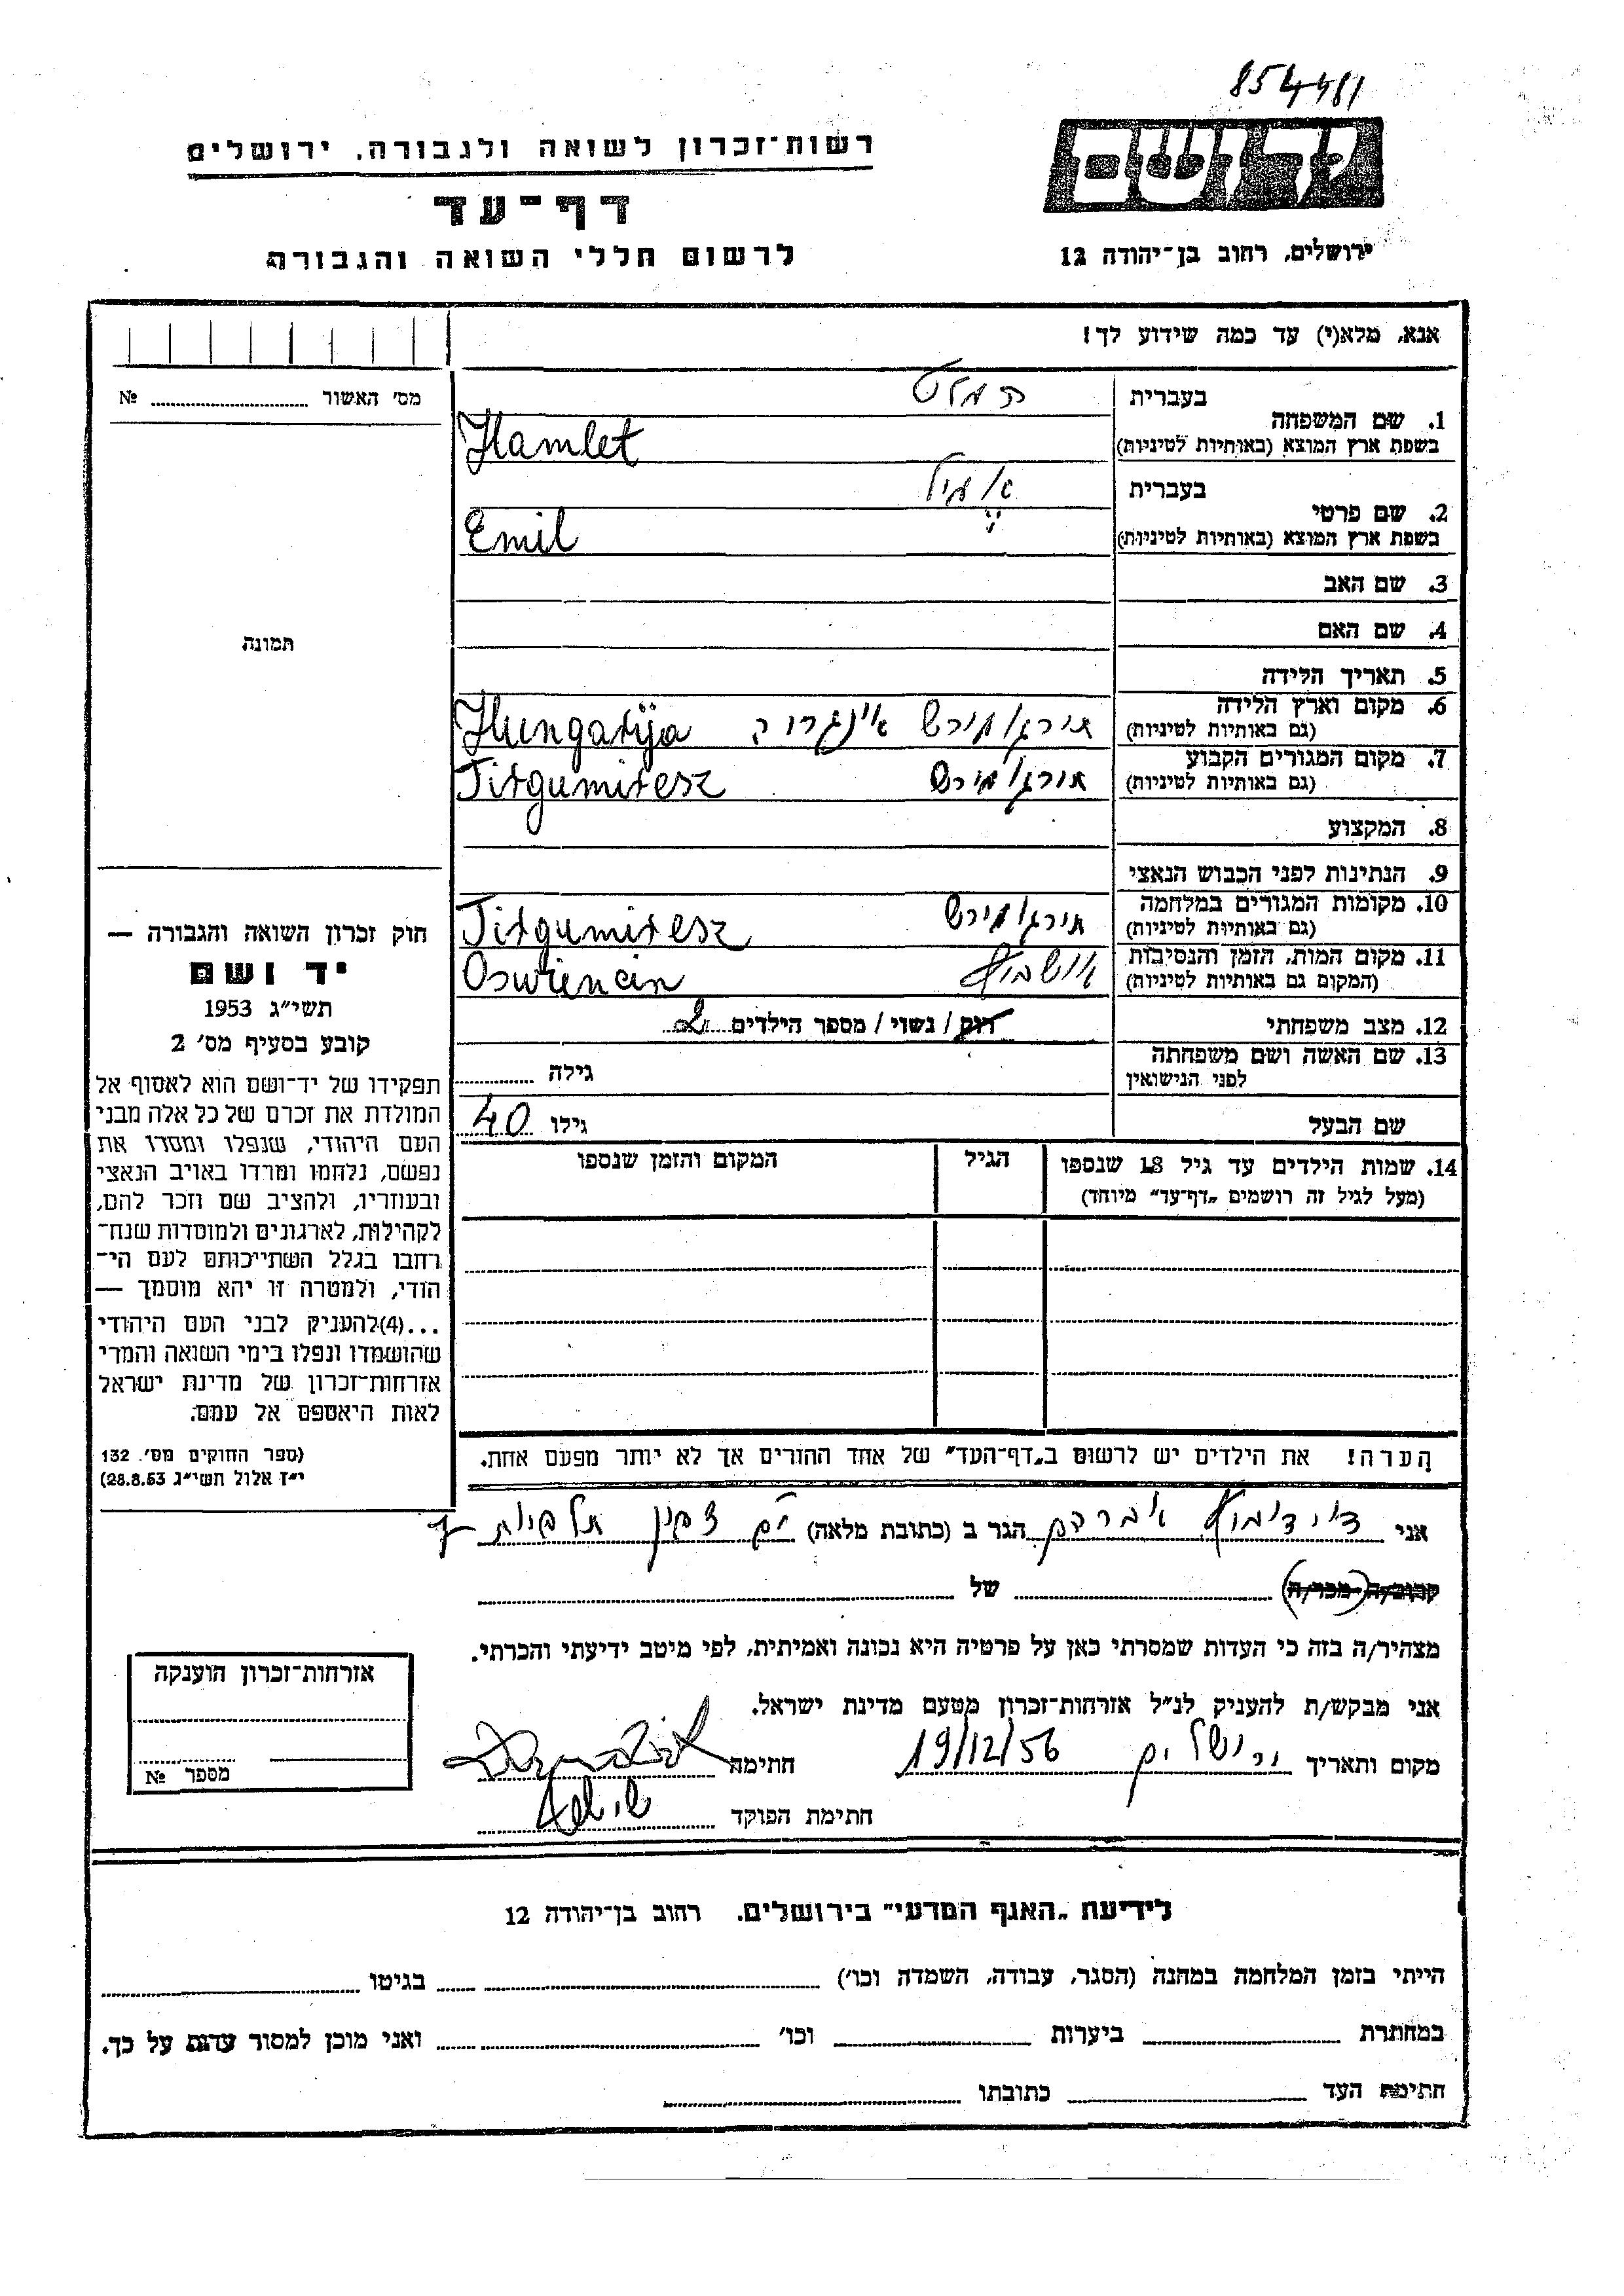 854481
יד ושם
רשות־זכרון לשואה ולגבורה, ירושלים
דף־עד
לרשום חללי השואה והגבורה
ירושלים, רחוב בן־יהודה 12
אנא, מלא(י) עד כמה שידוע לך!
מס׳ האשור № 
תמונה
1. שם המשפחה
בעברית המלט
בשפת ארץ המוצא (באותיות לטיניות) Hamlet
2. שם פרטי
בעברית אמיל
בשפת ארץ המוצא (באותיות לטיניות) Emil
3. שם האב
4. שם האם
5. תאריך הלידה
6. מקום וארץ הלידה
(גם באותיות לטיניות) Hungarija
7. מקום המגורים הקבוע
(גם באותיות לטיניות) Tirgumiresz
8. המקצוע
9. הנתינות לפני הכבוש הנאצי
10. מקומות המגורים במלחמה
(גם באותיות לטיניות) Tirgumiresz
11. מקום המות, הזמן והנסיבות
(המקום גם באותיות לטיניות) Oswiencin
12. מצב משפחתי רווק / נשוי / מספר הילדים 2
13. שם האשה ושם משפחתה
לפני הנישואין גילה
שם הבעל גילו 40
14. שמות הילדים עד גיל 18 שנספו הגיל המקום והזמן שנספו
(מעל לגיל זה רושמים „דף־עד״ מיוחד)
חוק זכרון השואה והגבורה —
יד ושם
תשי״ג 1953
קובע בסעיף מס׳ 2
תפקידו של יד־ושם הוא לאסוף אל
המולדת את זכרם של כל אלה מבני
העם היהודי, שנפלו ומסרו את
נפשם, נלחמו ומרדו באויב הנאצי
ובעוזריו, ולהציב שם וזכר להם,
לקהילות, לארגונים ולמוסדות שנח־
רחבו בגלל השתייכותם לעם הי־
הודי, ולמטרה זו יהא מוסמך —
...(4)להעניק לבני העם היהודי
שהושמדו ונפלו בימי השואה והמרי
אזרחות־זכרון של מדינת ישראל
לאות היאספם אל עמם.
(ספר החוקים מס׳ 132
י״ז אלול תשי״ג 28.8.53)
הערה! את הילדים יש לרשום ב„דף־העד״ של אחד ההורים אך לא יותר מפעם אחת.
אני דוידוביץ אברהם הגר ב (כתובת מלאה) תלפיות
קרוב/ה (מכר/ה) של
מצהיר/ה בזה כי העדות שמסרתי כאן על פרטיה היא נכונה ואמיתית, לפי מיטב ידיעתי והכרתי.
אני מבקש/ת להעניק לנ״ל אזרחות־זכרון מטעם מדינת ישראל.
מקום ותאריך ירושלים 19/12/56 חתימה
חתימת הפוקד
אזרחות־זכרון הוענקה
מספר №
לידיעת „האגף המדעי״ בירושלים, רחוב בן־יהודה 12
הייתי בזמן המלחמה במחנה (הסגר, עבודה, השמדה וכו׳) בגיטו
במחתרת ביערות וכו׳ ואני מוכן למסור עדות על כך.
חתימת העד כתובתו